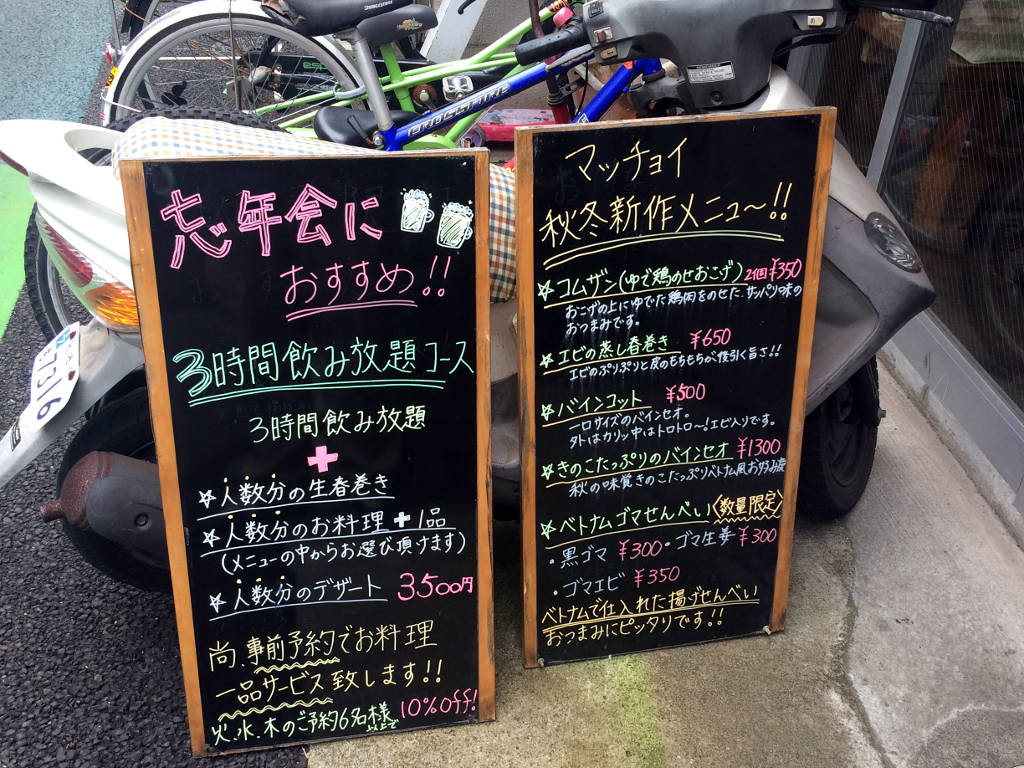 忘年会に
おすすめ!!
3時間飲み放題コース
3時間飲み放題
+
☆人数分の生春巻き
☆人数分のお料理+1品
(メニューの中からお選び頂けます)
☆人数分のデザート 3500円
尚、事前予約でお料理
一品サービス致します!!
火、水、木のご予約6名様以上で10%off!
マッチョイ
秋冬新作メニュ〜!!
☆コムザン(ゆで鶏のせおこげ)2個¥350
おこげの上にゆでた鶏肉をのせた、サッパリ味の
おつまみです。
☆エビの蒸し春巻き ¥650
エビのぷりぷりと皮のもちもちが後引く旨さ!!
☆バインコット ¥500
一口サイズのバインセオ。
外はカリッ中はトロトロ〜!エビ入りです。
☆きのこたっぷりのバインセオ ¥1300
秋の味覚きのこたっぷりベトナム風お好み焼
☆ベトナムゴマせんべい〈数量限定〉
・黒ゴマ ¥300・ゴマ生姜 ¥300
・ゴマエビ ¥350
ベトナムで仕入れた揚げせんべい
おつまみにピッタリです!!
CROSSFIRE
316